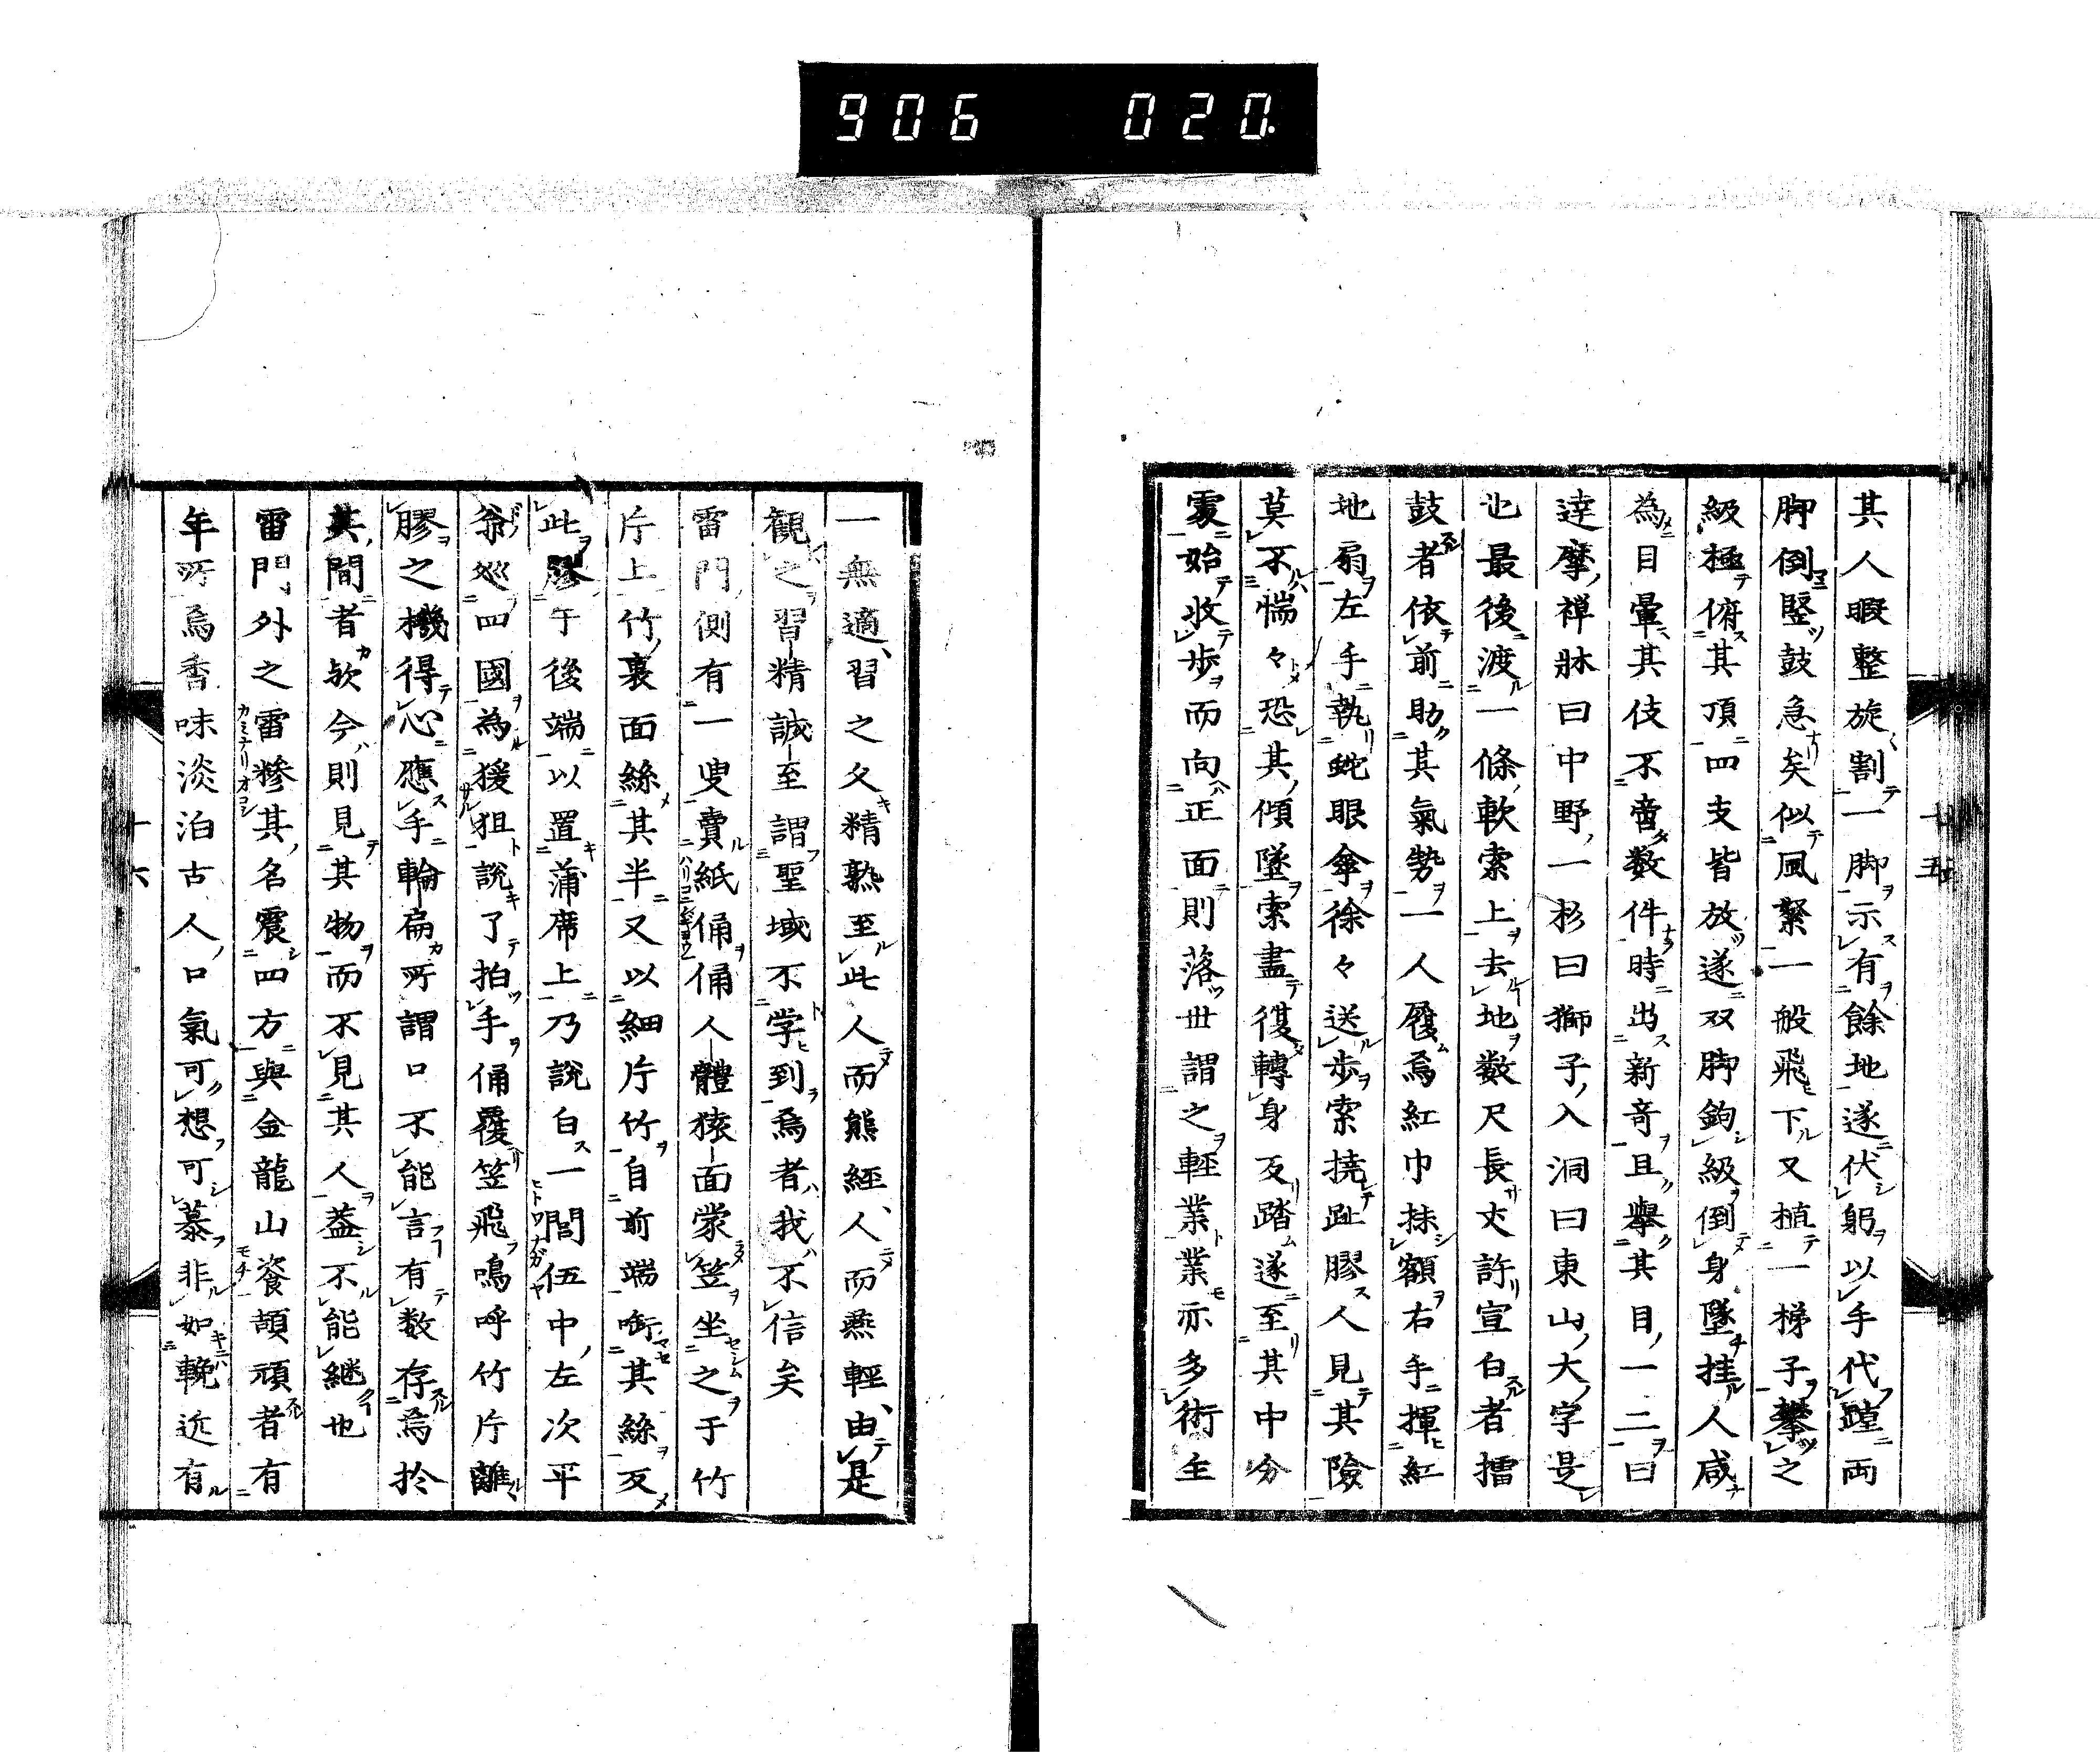 906 020
其人暇整旋割一脚示有餘地遂伏躬以手代蹠両
脚倒竪鼓急矣似風絮一般飛下又植一梯子攀之
級極俯其頂四支皆放遂双脚鉤級倒身墜挂人咸
為目暈其伎不啻数件時出新奇且舉其目一二曰
達摩禅牀曰中野一杉曰獅子入洞曰東山大字是
也最後渡一條軟索上去地数尺長丈許宣白者擂
鼓者依前助其氣勢一人履為紅巾抹額右手揮紅
地扇左手執蛇眼傘徐々送歩索撓趾膠人見其険
莫不惴々恐其傾墜索盡復轉身反踏遂至其中分
處始收歩而向正面則落世謂之輕業業亦多術主
十五
一無適習之久精熟至此人而熊經人而燕輕由是
観之習精誠至謂聖域不学到為者我不信矣
雷門側有一叟賣紙俑俑人體猿面蒙笠坐之于竹
片上竹裏面絲其半又以細片竹自前端銜其絲反
此膠于後端以置蒲席上乃説白一間伍中左次平
爺巡四國為猨狙説了拍手俑覆笠飛鳴呼竹片離
膠之機得心應手輪扁所謂口不能言有数存焉於
其間者歟今則見其物而不見其人蓋不能継也
雷門外之雷糝其名震四方與金龍山餈頡頏者有
年所為香味淡泊古人口氣可想可慕非如輓近有
十六